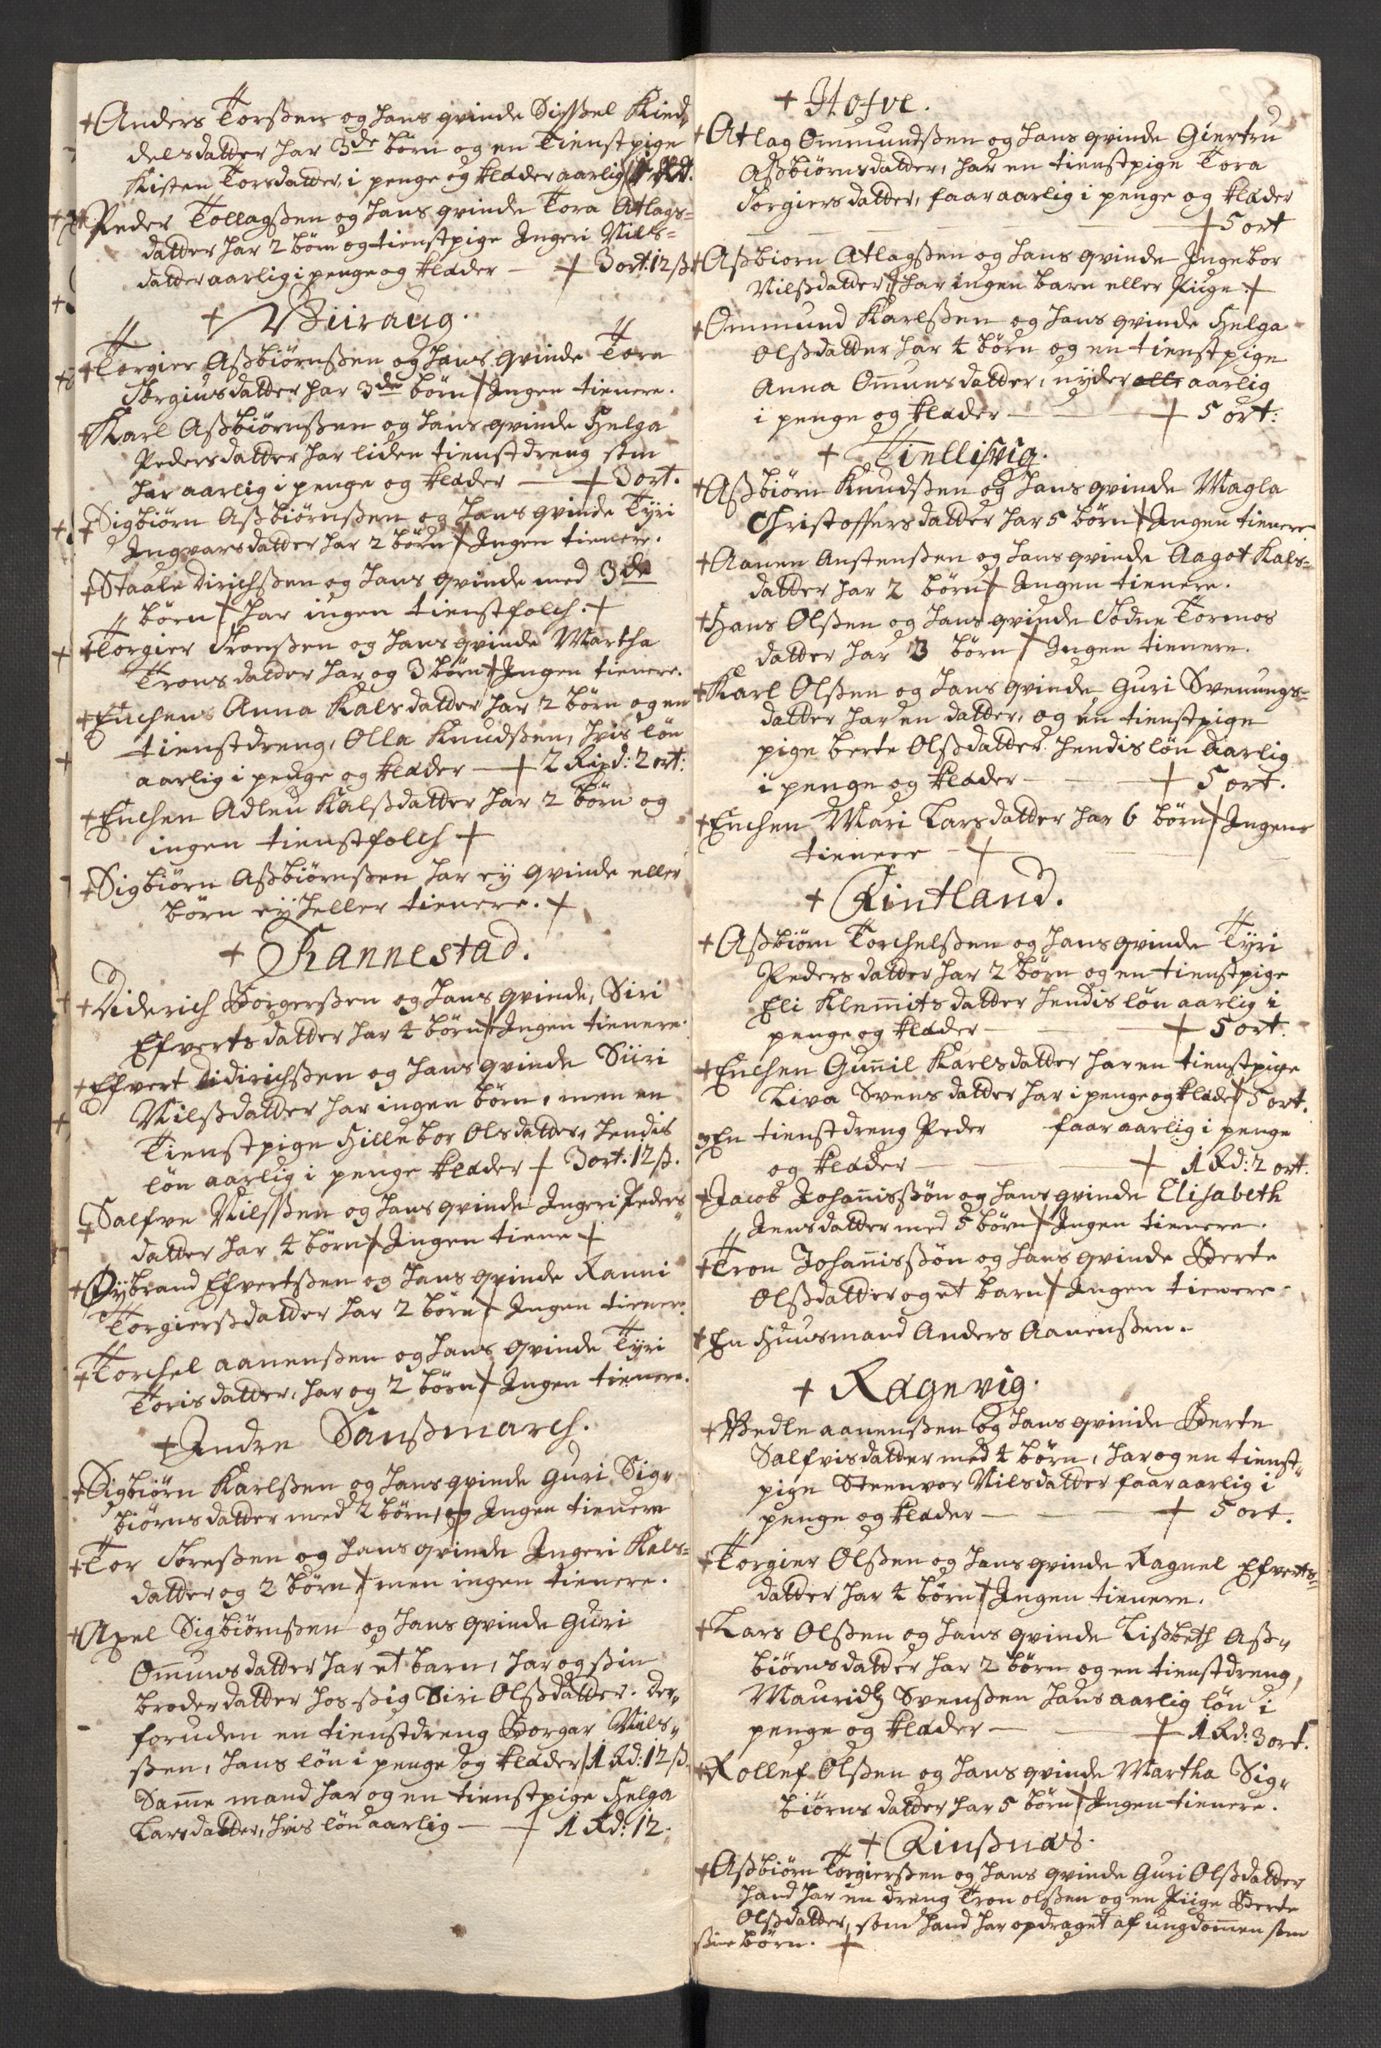 Anders Torsßen og hans qvinde Sißßel Kied-
delsdatter har 3de børn og en Tienstpige
Kisten Torsdatter, i penge og klæder aarlig 1 Rd.
Peder Tollagsßen og hans qvinde Tora Atlags-
datter har 2 børn og tienstpige Ingeri Niels-
datter aarlig i penge og klæder — 3 ort: 12 ß
Buraug.
Torgier Aßbiørnsßen og hans qvinde Tora
Torgiersdatter har 3de børn Ingen tienere.
Karl Aßbiørnsßen og hans qvinde Helga
Pedersdatter har liden tienstdreng som
har aarlig i penge og klæder — 3 ort.
Sigbiørn Aßbiørnsßen og hans qvinde Tyri
Ingvarsdatter har 2 børn Ingen tienere.
Staale Dirichsßen og hans qvinde med 3de
børn, har ingen tienstfolch.
Torgier Tronsßen og hans qvinde Martha
Tronsdatter har og 3 børn Ingen tienere.
Enchens Anna Kalsdatter har 2 børn og en
tienstdreng, Olla Knudsßen, hvis løn
aarlig i penge og klæder — 2 Rixd: 2 ort:
Enchen Adleu Kalsdatter har 2 børn og
ingen tienstfolch
Sigbiørn Aßbiørnsßen har ey qvinde eller
børn ey heller tienere.
Rannestad.
Diderich Borgersßen og hans qvinde, Siri
Efvertsdatter har 4 børn Ingen tienere.
Efvert Didirichsßen og hans qvinde Siiri
Nilsdatter har ingen børn, men en
Tienstpige Hillebor Olsdatter, hendis
løn aarlig i penge klæder 3 ort. 12 ß.
Salfve Nilsßen og hans qvinde Ingeri Peders
datter har 4 børn Ingen tiene
Oybrand Efvertsßen og hans qvinde Ranni
Torgiersdatter har 2 børn Ingen tienere
Torchel aanensßen og hans qvinde Tyri
Torisdatter, har og 2 børn Ingen tienere.
Indre Saußmarch.
Sigbiørn Karlsßen og hans qvinde Guri Sig-
biørnsdatter med 2 børn, og Ingen tienere
Tor Toresßen og hans qvinde Ingeri Kals-
datter og 2 børn men ingen tienere.
Axel Sigbiørnsßen og hans qvinde Guri
Omunsdatter har et barn, har og ßin
broderdatter hos ßig Siri Olsdatter. Der-
foruden en tienstdreng Borgar Nils-
ßen, hans løn i penge og klæder 1 Rd: 12 ß.
Samme mand har og en tienstpige Helga
Larsdatter, hvis løn aarlig — 1 Rd: 12.
Hofve.
Atlag Ommundsßen og hans qvinde Giertru
Aßbiørnsdatter, har en tienstpige Tora
Torgiersdatter, faar aarlig i penge og klæder
5 ort
Aßbiorn Atlagsßen og hans qvinde Ingebor
Nilsdatter har ingen barn eller Piige
Ommund Karlsßen og hans qvinde Helga
Olsdatter har 4 børn og en tienstpige
Anna Omunsdatter, nyder aarlig
i penge og klæder — 5 ort:
Tiellisvig.
Aßbiørn Knudsßen og hans qvinde Magla
Christoffersdatter har 5 børn Ingen tienere
Aanen Anstensßen og hans qvinde Aagot Kals-
datter har 2 børn Ingen tienere.
Hans Olsßen og hans qvinde Todne Tormos
datter har 3 børn Ingen tienere.
Karl Olsßen og hans qvinde Guri Svenungs-
datter har en datter, og en tienstpige
pige berte Olsdatter hendis løn aarlig
i penge og klæder — 5 ort.
Enchen Mari Larsdatter har 6 børn Ingen
tienere
Rintland.
Aßbiørn Torchelsßen og hans qvinde Tyri
Pedersdatter har 2 børn og en tienstpige
Eli Klemmitsdatter hendis løn aarlig i
penge og klæder — 5 ort.
Enchen Gunnil Karlsdatter har en tienstpige
Liva Svensdatter har i penge og klæder 5 ort.
En tienstdreng Peder faar aarlig i penge
og klæder — 1 Rd: 2 ort.
Jacob Johannisßøn og hans qvinde Elisabeth
Jensdatter med 5 børn Ingen tienere.
Tron Johannisßøn og hans qvinde Berte
Olsdatter og et barn Ingen tienere
En Huusmand Anders Aanensßen.
Rægevig.
Vedle aanensßen og hans qvinde Berte
Salfvisdatter med 4 børn, har og en tienst-
pige Steenvor Nilsdatter faar aarlig i
penge og klæder — 5 ort.
Torgier Olsßen og hans qvinde Ragnel Efverts-
datter har 4 børn Ingen tienere.
Lars Olsßen og hans qvinde Lisbeth Aß-
biørnsdatter har 2 børn og en tienstdreng,
Mauridtz Svensßen hans aarlig løn i
penge og klæder — 1 Rd: 3 ort.
Rollef Olsßen og hans qvinde Martha Sig-
biørnsdatter har 5 børn Ingen tienere.
Rinßnæs.
Aßbiørn Torgiersßen og hans qvinde Guri Olsdatter
hand har en dreng Tron olsßen og en Piige Berte
Olsdatter, som hand har opdraget af ungdommen som
ßine børn.